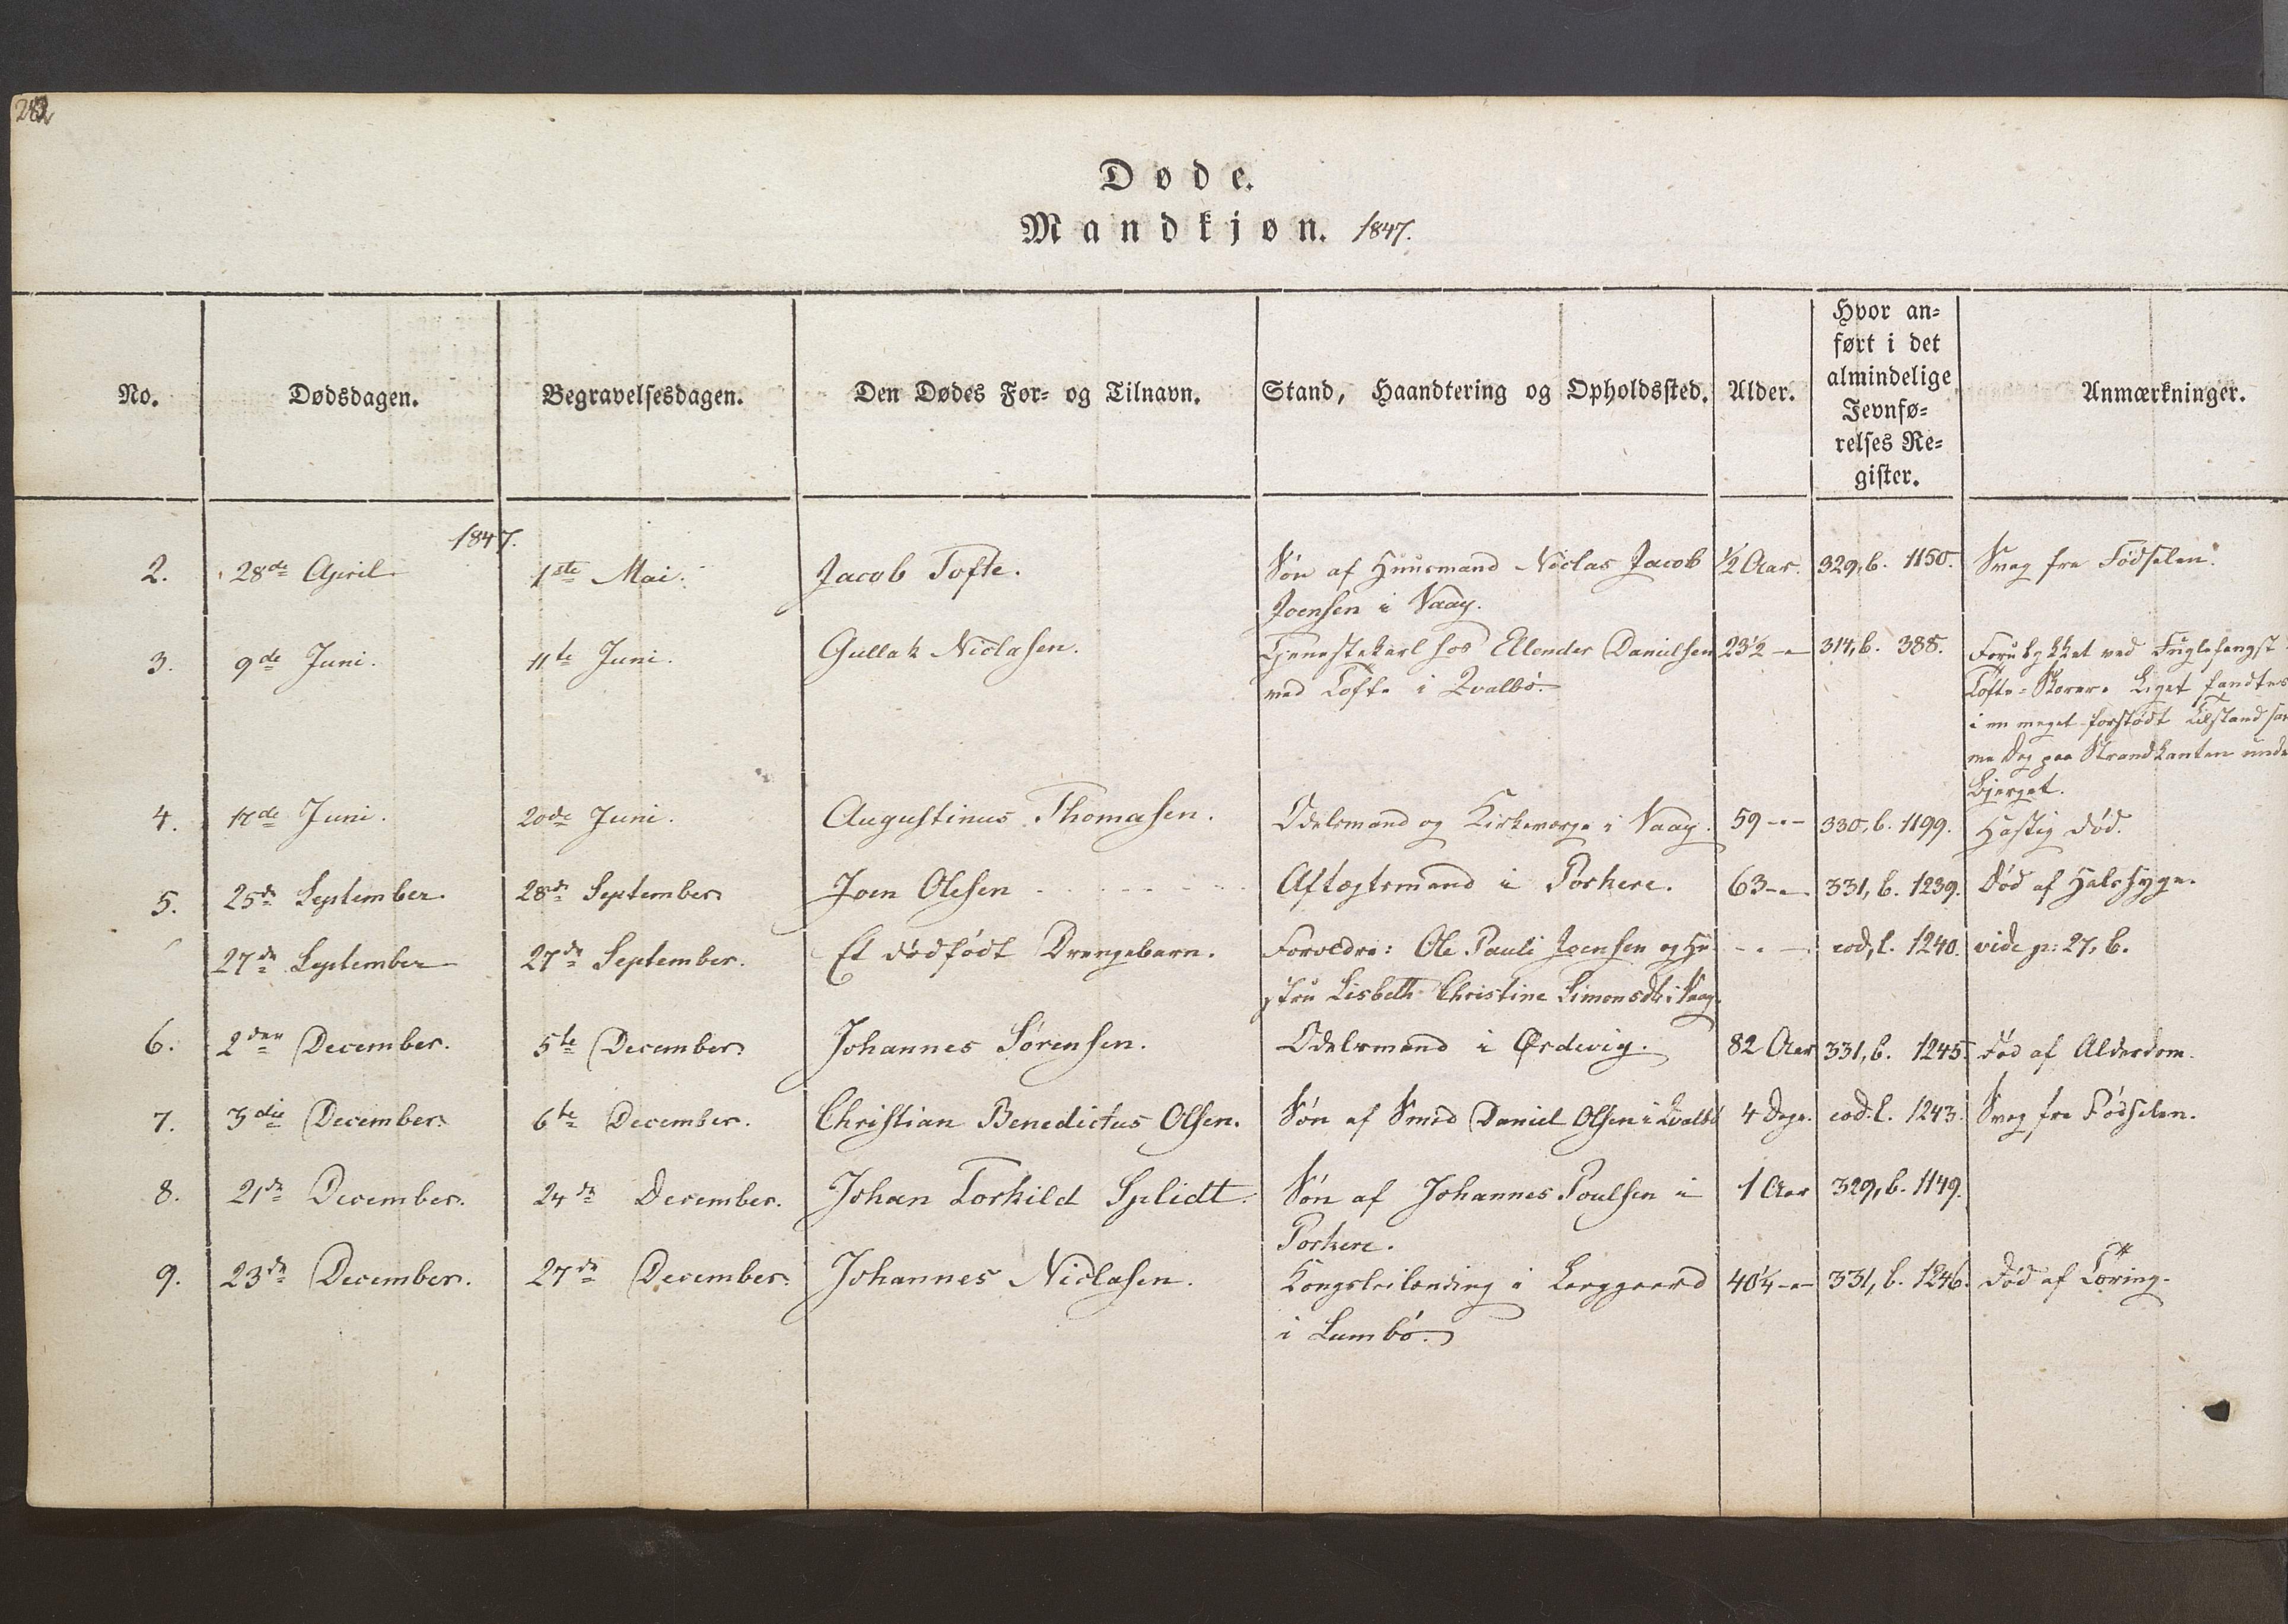 Døde.
Mandkjøn. 1847.
No. Dødsdagen. Begravelsesdagen. Den Dødes For- og Tilnavn. Stand, Haandtering og Opholdssted. Alder. Hvor an=
ført i det
almindelige
Jevnfø=
relses Re=
gister. Anmærkninger.
1847.
2. 28de April 1ste Mai. Jacob Tofte. Søn af Huusmand Niclas Jacob ½ Aar. 329, b. 1150. Svag fra Fødselen.
Joensen i Vaag.
3. 9de Juni. 11te Juni. Gullak Niclasen. Tjenestekarl hos Ellender Danielsen 23½ -"- 314, b. 388. Forulykket ved Fuglefangst
ved Tofte i Qvalbø. Tofte-Skorer. Liget fandtes
i en meget forstødt Tilstand sam
me Dag paa Strandkanten unde
Bjerget.
4. 17de Juni. 20de Juni. Augustinus Thomasen. Odelsmand og Kirkeværge i Vaag. 59 -"- 330, b. 1199. Hastig død.
5. 25de September 28de September Joen Olesen Aftægtsmand i Porkere. 63 -"- 331, b. 1239. Død af Halssyge.
27de September 27de September. Et dødfødt Drengebarn. Forældre: Ole Pauli Joensen og Hu - " - eod. l. 1240. vide p: 27, b.
stru Lisbeth Christine Simonsdtr i Vaag.
6. 2den December. 5te December Johannes Sørensen. Odelsmand i Ørdevig. 82 Aar 331, b. 1245. Død af Alderdom.
7. 3die December. 6te December. Christian Benedictus Olsen. Søn af Smed Daniel Olsen i Qvalbø 4 Dage. eod. l. 1243. Svag fra Fødselen.
8. 21de December. 24de December. Johan Torkild Splidt. Søn af Johannes Poulsen i 1 Aar 329, b. 1149.
Porkere.
9. 23de December. 27de December. Johannes Niclasen. Kongsleilænding i Leeggaard 40¼ -"- 331, b. 1246. Død af Tæring.
i Sumbø.